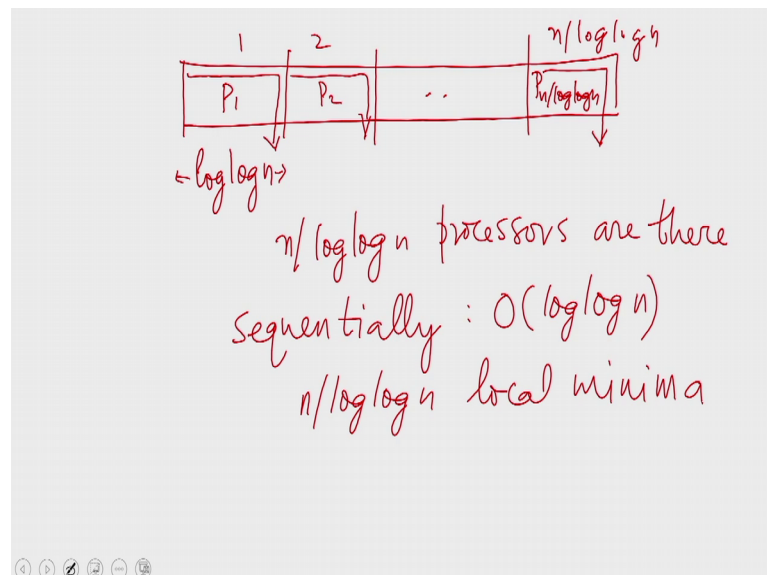 1 2 n/loglogn
P₁ P₂ .. Pn/loglogn
←loglogn→
n/loglogn processors are there
sequentially : O(loglogn)
n/loglogn local minima